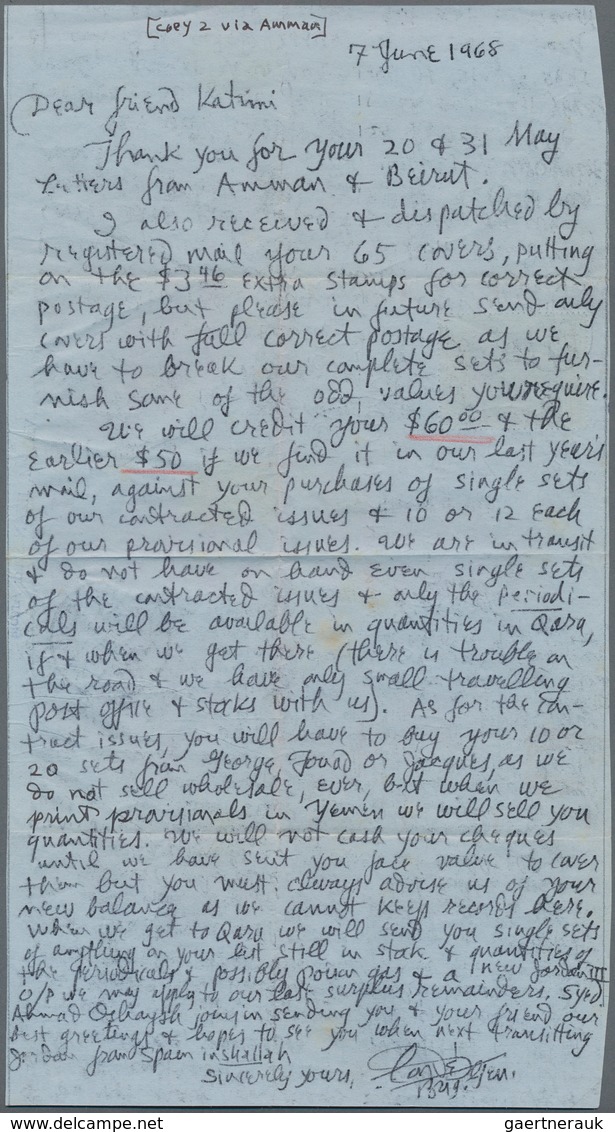 [copy 2 via Amman]
7 June 1968
Dear friend Katimi
Thank you for your 20 & 31 May
letters from Amman & Beirut.
I also received & dispatched by
registered mail your 65 covers, putting
on the $3.46 extra stamps for correct
postage, but please in future send only
covers with full correct postage as we
have to break our complete sets to fur-
nish some of the odd values you require.
We will credit your $60.00 & the
earlier $50 if we find it in our last year's
mail, against your purchases of single sets
of our contracted issues & 10 or 12 each
of our provisional issues. We are in transit
& do not have on hand even single sets
of the contracted issues & only the periodi-
cals will be available in quantities in Qara,
if & when we get there (there is trouble on
the road & we have only small travelling
post office & stocks with us). As for the con-
tract issues, you will have to buy your 10 or
20 sets from George, Fouad or Jacques, as we
do not sell wholesale, ever, but when we
print provisionals in Yemen we will sell you
quantities. We will not cash your cheques
until we have sent you face value to cover
them but you must always advise us of your
new balance as we cannot keep records here.
When we get to Qara we will send you single sets
of anything on your list still in stock & quantities of
the periodicals & possibly poison gas & a new Jordan III
o/p we may apply to our last surplus remainders. Syed
Ahmad joins in sending you & your friend our
best greetings & hopes to see you when next transitting
Jordan from Spain inshallah
Sincerely yours,
Brig. Gen.
delcampe.net
gaertnerauk